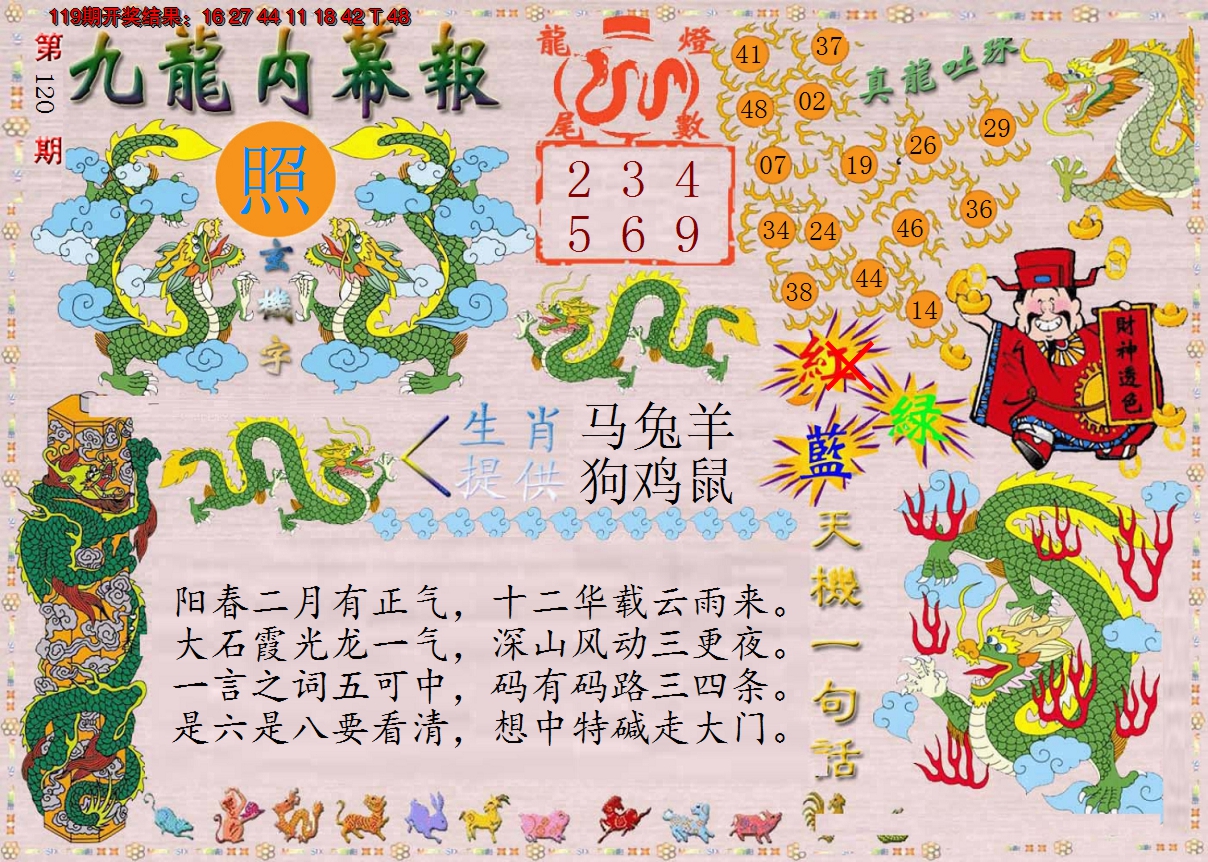 119期开奖结果：16 27 44 11 18 42 T 48
第120期
九龍内幕報
照
玄機字
龍燈
尾數
2 3 4
5 6 9
真龍吐珠
41
37
48
02
29
26
07
19
36
34
24
46
44
38
14
財神透色
紅
綠
藍
生肖提供
马兔羊
狗鸡鼠
天機一句話
阳春二月有正气，十二华载云雨来。
大石霞光龙一气，深山风动三更夜。
一言之词五可中，码有码路三四条。
是六是八要看清，想中特碱走大门。